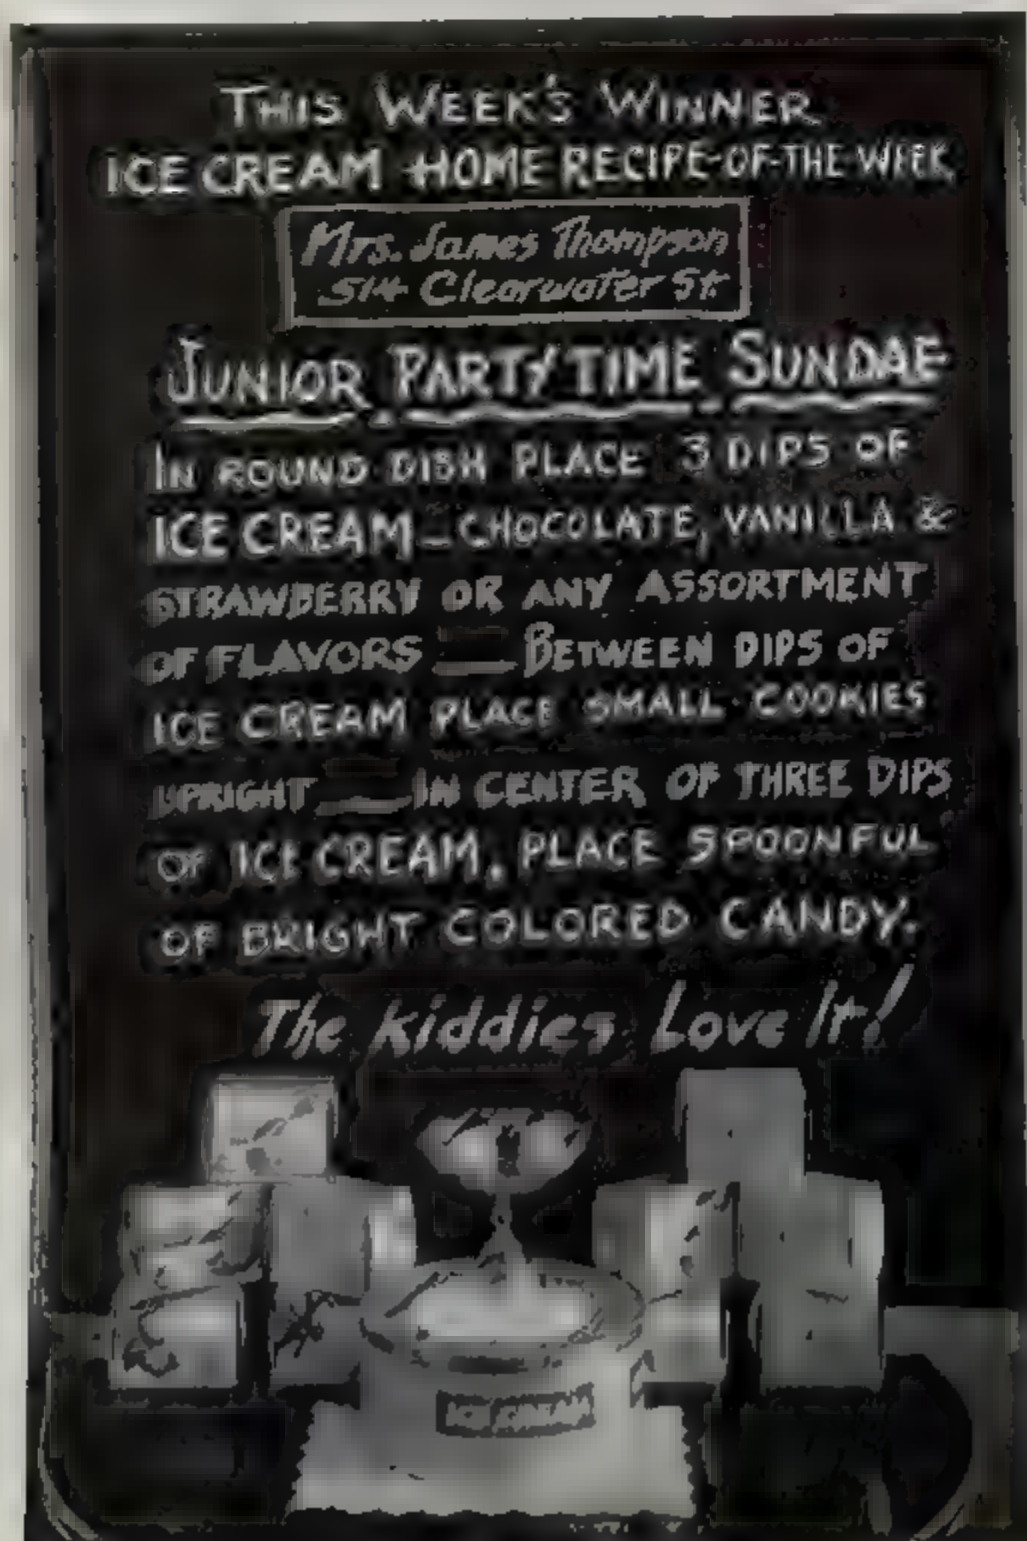 THIS WEEK'S WINNER
ICE CREAM HOME RECIPE-OF-THE-WEEK
Mrs. James Thompson
514 Clearwater St.
JUNIOR PARTYTIME SUNDAE
IN ROUND DISH PLACE 3 DIPS OF
ICE CREAM - CHOCOLATE, VANILLA &
STRAWBERRY OR ANY ASSORTMENT
OF FLAVORS — BETWEEN DIPS OF
ICE CREAM PLACE SMALL COOKIES
UPRIGHT — IN CENTER OF THREE DIPS
OF ICE CREAM, PLACE SPOONFUL
OF BRIGHT COLORED CANDY.
The Kiddies Love It!
ICE CREAM